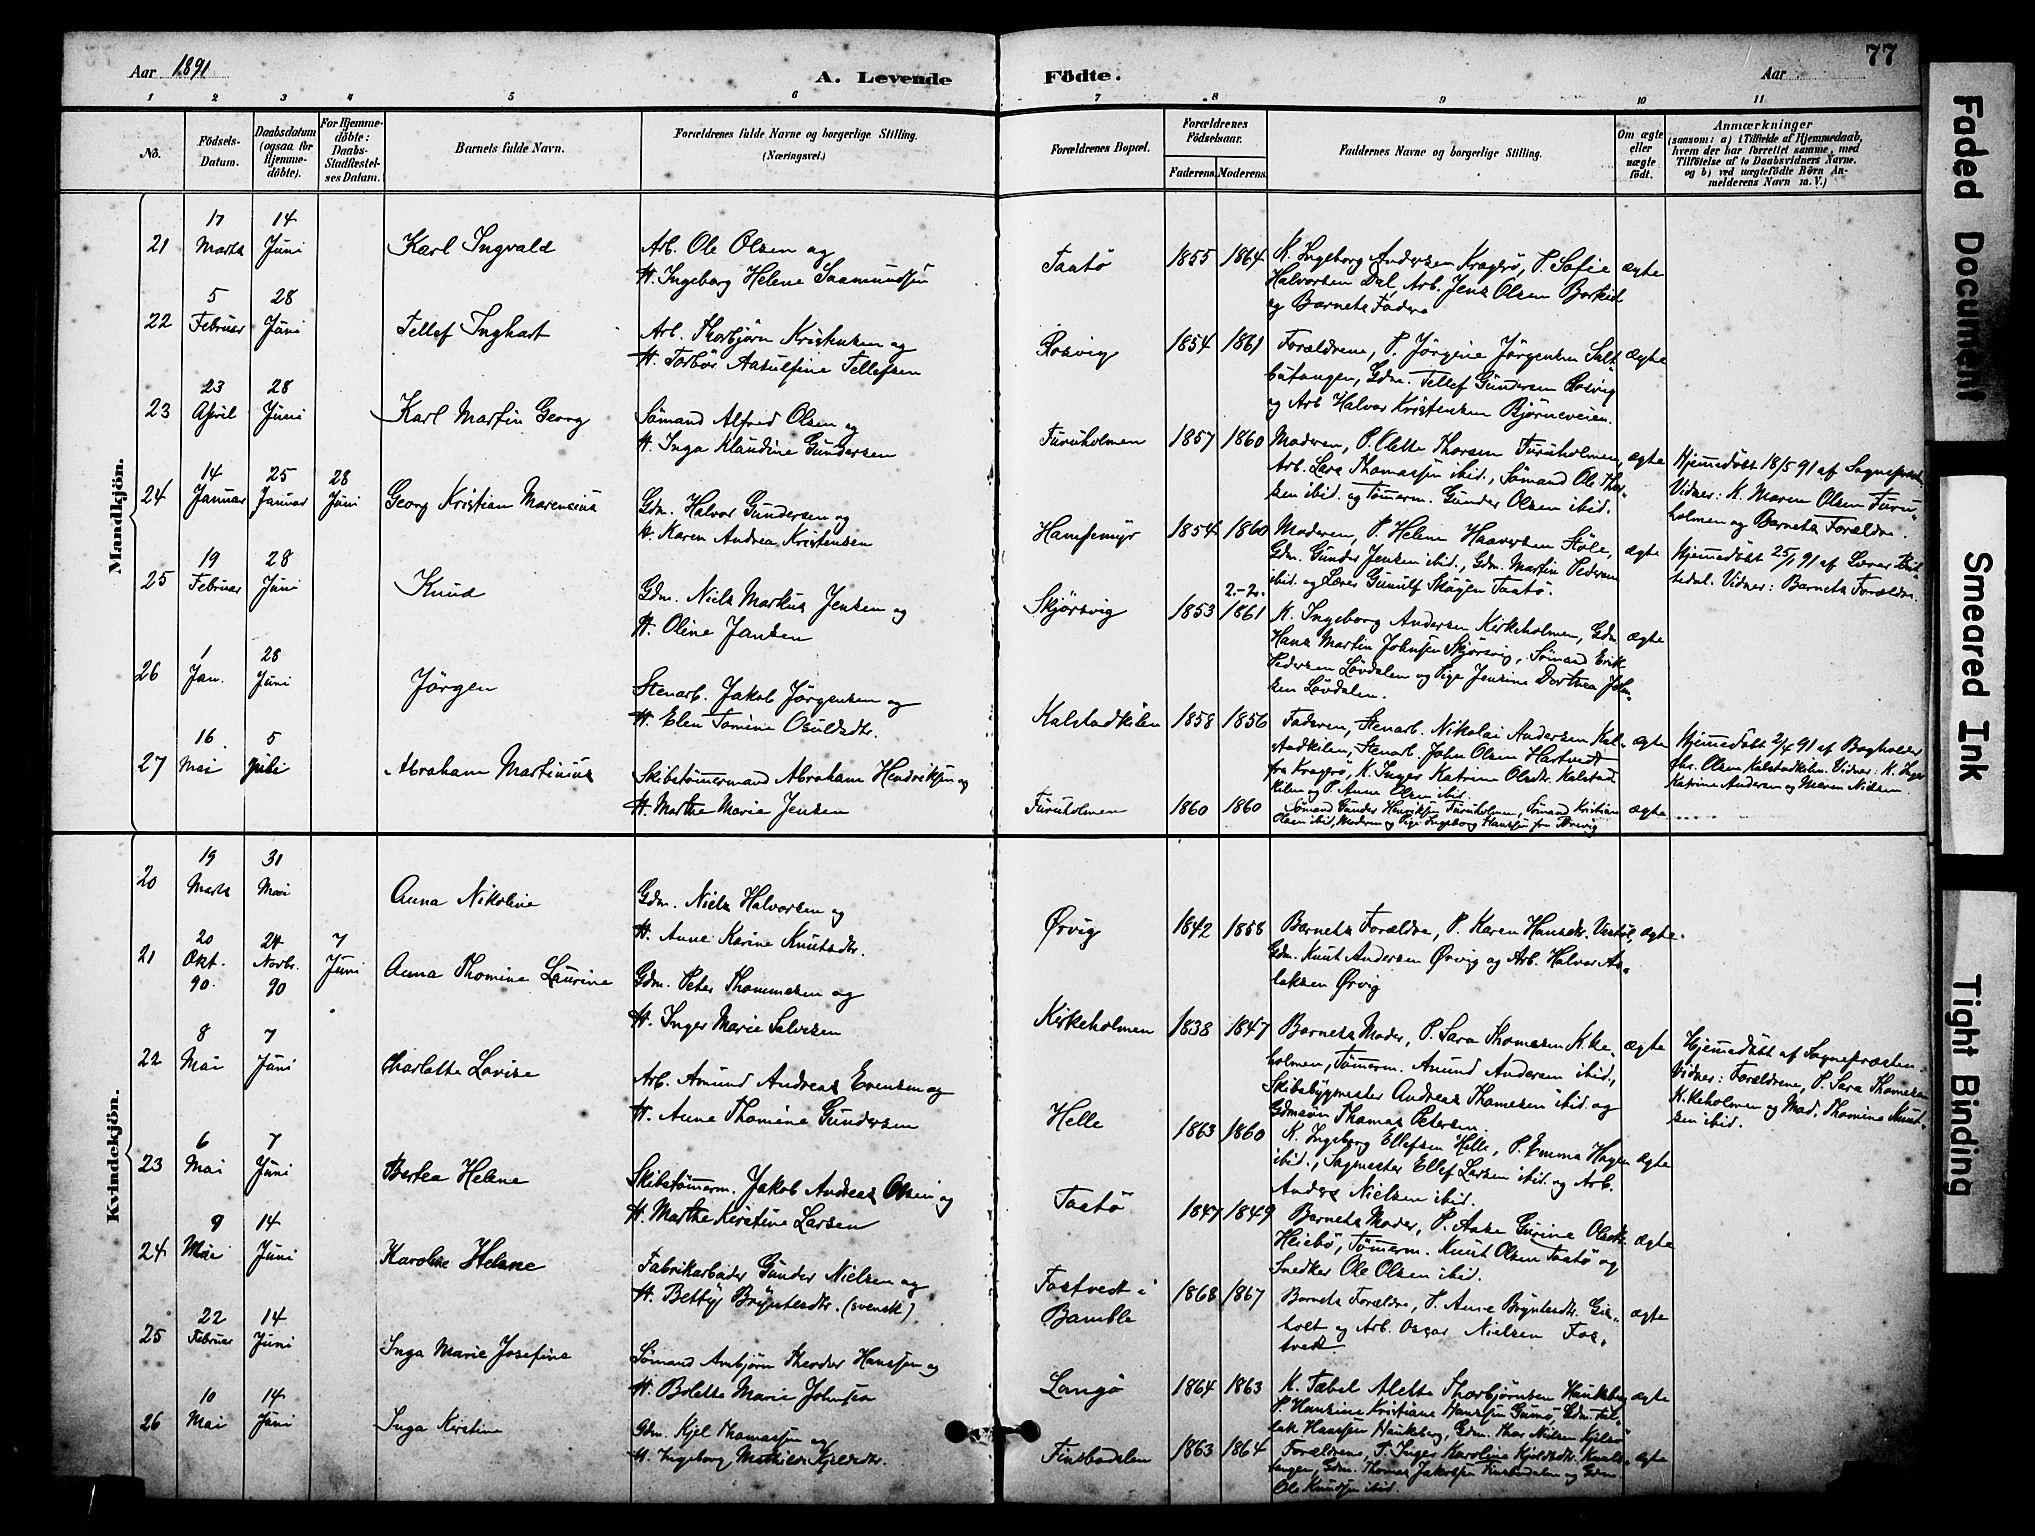 77
Aar 1891
A. Levende
Födte.
Aar
1 2 3 4 5 6 7 8 9 10 11
No.
Födsels-
Datum.
Daabsdatum
(ogsaa for
Hjemme-
döbte).
For Hjemme-
döbte:
Daabs-
Stadfæstel-
ses Datum.
Barnets fulde Navn.
Forældrenes fulde Navne og borgerlige Stilling.
(Næringsvei.)
Forældrenes Bopæl.
Forældrenes
Födselsaar.
Faderens. Moderens.
Faddernes Navne og borgerlige Stilling.
Om ægte
eller
uægte
født.
Anmærkninger
(saasom: a) i Tilfælde af Hjemmedaab,
hvem der har forrettet samme, med
Tilföielse af to Daabsvidners Navne.
og b) ved uægtefödte Börn An-
melderens Navn m. V.)
Mandkjön.
21
17
Marts
14
Juni
Karl Ingvald
Arb. Ole Olsen og
H. Ingeborg Helene Saamundsen
Taatö
1855 1864
K. Ingeborg Andersen Kragerö, P. Sofie
Halvorsen Dal, Arb. Jens Olsen
og Barnets Fader
ægte
22
5
Februar
28
Juni
Tellef Inghart
Arb. Thorbjörn Kristensen og
H. Torbör Aasulfine Tellefsen
Rosvig
1854 1861
Forældrene, P. Jörgine Jörgensen Salt-
butangen, Gdm. Tellef Gundersen Rosvig
og Arb Halvor Kristensen Björneveien.
ægte
23
23
April
28
Juni
Karl Martin Georg
Sömand Alfred Olsen og
H. Inga Klaudine Gundersen
Furuholmen
1857 1860
Moderen, P. Olette Thorsen Furuholmen,
Arb. Lars Thomassen ibid., Sömand Ole Thor-
sen ibid. og Tömerm. Gunder Olsen ibid.
ægte
Hjemmedöbt 18/5 91 af Sognepræsten.
Vidner: K. Maren Olsen Furu-
holmen og Barnets Forældre.
24
14
Januar
25
Januar
28
Juni
Georg Kristian Marensius
Gdm. Halvor Gundersen og
H. Karen Andrea Kristensen
1854 1860
Moderen, P. Helene Haavorsen Støle,
Gdm. Gunder Jensen ibid., Gdm. Martin Pedersen
ibid. og Lærer Gunulf Skogen Taatö.
ægte
Hjemmedöbt 25/1 91 af Lærer
Vidner: Barnets Forældre.
25
19
Februar
28
Juni
Knud
Gdm. Niels Markus Jensen og
H. Oline Jansen
Skjörsvig
1853 1861
K. Ingeborg Andersen Kirkeholmen, Gdm.
Hans Martin Johnsen Skjörsvig, Sömand Erik
Pedersen Lövdalen og Pige Jensine Dorthea John-
sen Lövdalen.
ægte
26
1
Jan.
28
Juni
Jörgen
Stenarb. Jakob Jörgensen og
H. Elen Tomine Osuldsdtr.
Kalstadkilen
1858 1856
Faderen, Stenarb. Nikolai Andersen Kal-
stadkilen, Stenarb. John Olsen Hartvedt
fra Kragerö, K. Inger Katrine Olsdt. Kalstad
kilen og P. Anne Olsen ibid.
ægte
Hjemmedöbt 2/4 91 af Bogholder
Chr. Olsen Kalstadkilen. Vidner: K. Inger
Katrine Andersen og Maren Nielsen
27
16
Mai
5
Juli
Abraham Martinius
Skibstömermand Abraham Hendriksen og
H. Marthe Marie Jensen
Furuholmen
1860 1860
Sömand Gunder Henriksen Furuholmen, Sömand Kristian
Olsen ibid, Moderen og Pige Ingeborg Hanssen fra
ægte
Kvindekjön.
20
19
Marts
31
Mai
Anna Nikoline
Gdm. Niels Halvorsen og
H. Anne Karine Knutsdtr.
Ørvig
1842 1858
Barnets Forældre, P. Karen Hansdtr.
Gdm. Knut Andersen Ørvig og Arb. Halvor As-
laksen Ørvig
ægte
21
20
Okt.
90.
24
Novbr.
90
7
Juni
Anna Thomine Laurine
Gdm. Peter Thommesen og
H. Inger Marie Salvesen
Kirkeholmen
1838 1847
Barnets Moder, P. Sara Thomesen K.ke-
holmen, Tömerm. Anund Andersen ibid.,
Skibsbygmester Andreas Thomesen ibid og
Gdmsön Thomas Petersen.
ægte
Hjemmedöbt af Sognepræsten.
Vidner: Forældrene, P. Sara Thomesen
K.keholmen og Mad. Thomine Knud-
sen ibid.
22
8
Mai
7
Juni
Charlotte Lovise
Arb. Amund Andreas Evensen og
H. Anne Thomine Gundersen
Helle
1863 1860
K. Ingeborg Ellefsen Helle, P. Emma Hagen
ibid., Sagmester Ellef Larsen ibid. og Arb.
Anders Nielsen ibid.
ægte
23
6
Mai
7
Juni
Bertea Helene
Skibstömerm. Jakob Andreas Olsen og
H. Marthe Kirstine Larsen
Taatö
1847 1849
Barnets Moder, P. Aase Gurine Olsdt.
Heiebö, Tömerm. Knut Olsen Taatö og
Snedker Ole Olsen ibid.
ægte
24
9
Mai
14
Juni
Karoline Helene
Fabrikarbeider Gunder Nielsen og
H. Betty Bryntesdtr. (svensk)
Fostvedt i
Bamble
1868 1867
Barnets Forældre, P. Anne Bryntesdtr. Gis-
holt og Arb. Oscar Nielsen Fos-
tvedt
ægte
25
22
Februar
14
Juni
Inga Marie Josefine
Sömand Arnbjörn Theodor Hanssen og
H. Bolette Marie Johnsen
Langö
1864 1863
K. Tabel Alette Thorbjörnsen Haukeberg
P. Hansine Kristiane Hanssen Gumö, Gdm. Tal-
lak Hanssen Haukeberg, Gdm. Thor Nilsen
ægte
26
10
Mai
14
Juni
Inga Kirstine
Gdm. Kjel Thomassen og
H. Ingeborg Mathilde Kjeldsdtr.
Finsbodalen
1863 1864
Forældrene, P. Inger Karoline Kjeldsdtr.
Gdm. Thomas Jakobsen Finsbodalen og Gdm
Ole Knudsen ibid.
ægte
Faded Document
Smeared Ink
Tight Binding